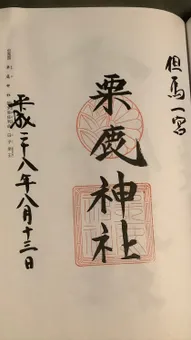 但馬一宮
粟鹿神社
平成二十八年八月十三日